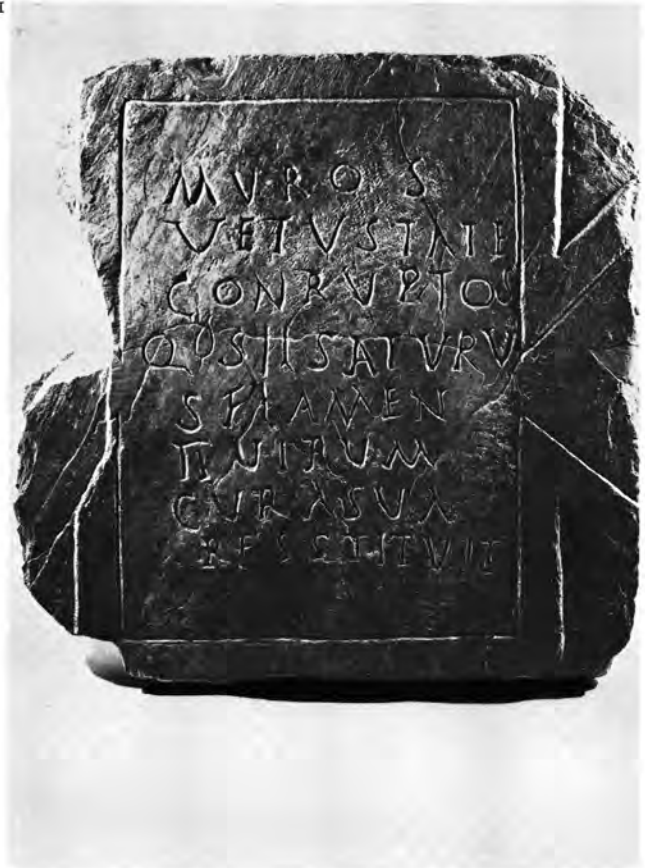 MVROS
VETVSTATE
CONRVPTOS
SATVRV
S FLAMEN
IIVIRVM
CVRA SVA
RESSTITVIT